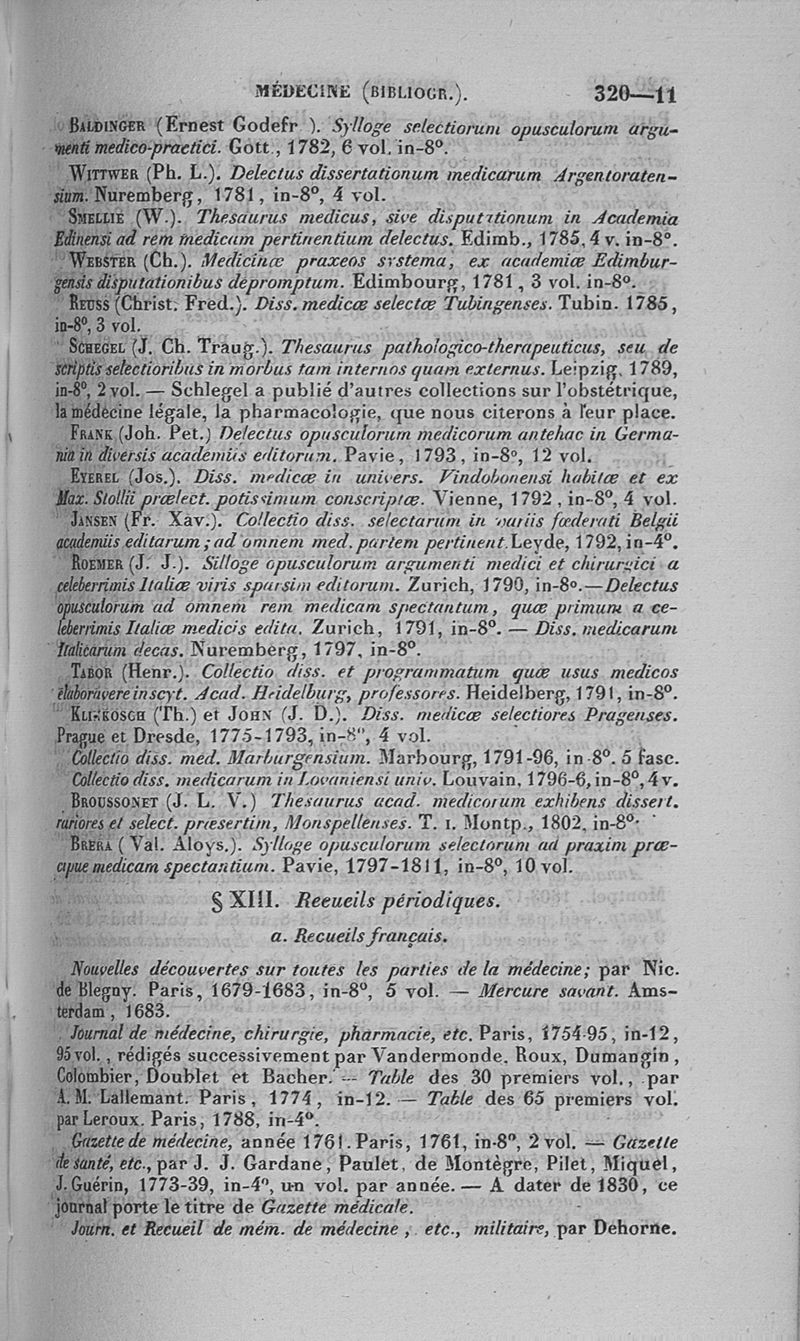 MÉDECINE (BIBLIOGR.). 320—11
BALDINGER (Ernest Godefr ). Sylloge selectiorum opusculorum argu-
menti medico-practici. Gott., 1782, 6 vol. in-8º.
WITTWER (Ph. L.). Delectus dissertationum medicarum Argentoraten-
sium. Nuremberg, 1781, in-8º, 4 vol.
SMELLIE (W.). Thesaurus medicus, sive disputationum in Academia
Edinensi ad rem medicam pertinentium delectus. Edimb., 1785, 4 v. in-8º.
WEBSTER (Ch.). Medicinæ praxeos systema, ex academiæ Edimbur-
gensis disputationibus depromptum. Edimbourg, 1781, 3 vol. in-8º.
REUSS (Christ. Fred.). Diss. medicæ selectæ Tubingenses. Tubin. 1785,
in-8º, 3 vol.
SCHEGEL (J. Ch. Traug.). Thesaurus pathologico-therapeuticus, seu de
scriptis selectioribus in morbus tam internos quam externus. Leipzig, 1789,
in-8º, 2 vol. — Schlegel a publié d'autres collections sur l'obstétrique,
la médecine légale, la pharmacologie, que nous citerons à leur place.
FRANK (Joh. Pet.) Delectus opusculorum medicorum antehac in Germa-
nia in diversis academiis editorum. Pavie, 1793, in-8º, 12 vol.
EYEREL (Jos.). Diss. medicæ in univers. Vindobonensi habitæ et ex
Max. Stollii prælect. potissimum conscriptæ. Vienne, 1792, in-8º, 4 vol.
JANSEN (Fr. Xav.). Collectio diss. selectarum in variis fœderati Belgii
academiis editarum ; ad omnem med. partem pertinent. Leyde, 1792, in-4º.
ROEMER (J. J.). Silloge opusculorum argumenti medici et chirurgici a
celeberrimis Italiæ viris sparsim editorum. Zurich, 1790, in-8º.—Delectus
opusculorum ad omnem rem medicam spectantum, quæ primum a ce-
leberrimis Italiæ medicis edita. Zurich, 1791, in-8º. — Diss. medicarum
Italicarum decas. Nuremberg, 1797, in-8º.
TABOR (Henr.). Collectio diss. et programmatum quæ usus medicos
elaboravere inscyt. Acad. Heidelburg, professores. Heidelberg, 1791, in-8º.
KLINKOSCH (Th.) et JOHN (J. D.). Diss. medicæ selectiores Pragenses.
Prague et Dresde, 1775-1793, in-8º, 4 vol.
Collectio diss. med. Marburgensium. Marbourg, 1791-96, in-8º. 5 fasc.
Collectio diss. medicarum in Lovaniensi univ. Louvain, 1796-6, in-8º, 4 v.
BROUSSONET (J. L. V.) Thesaurus acad. medicorum exhibens dissert.
rariores et select. præsertim, Monspellenses. T. I. Montp., 1802, in-8º.
BRERA (Val. Aloys.). Sylloge opusculorum selectorum ad praxim præ-
cipue medicam spectantium. Pavie, 1797-1811, in-8º, 10 vol.
§ XIII. Reeueils périodiques.
a. Recueils français.
Nouvelles découvertes sur toutes les parties de la médecine; par Nic.
de Blegny. Paris, 1679-1683, in-8º, 5 vol. — Mercure savant. Ams-
terdam, 1683.
Journal de médecine, chirurgie, pharmacie, etc. Paris, 1754-95, in-12,
95 vol., rédigés successivement par Vandermonde, Roux, Dumangin,
Colombier, Doublet et Bacher. — Table des 30 premiers vol., par
A. M. Lallemant. Paris, 1774, in-12. — Table des 65 premiers vol.
par Leroux. Paris, 1788, in-4º.
Gazette de médecine, année 1761. Paris, 1761, in-8º, 2 vol. — Gazette
de santé, etc., par J. J. Gardane, Paulet, de Montègre, Pilet, Miquel,
J. Guérin, 1773-39, in-4º, un vol. par année. — A dater de 1830, ce
journal porte le titre de Gazette médicale.
Journ. et Recueil de mém. de médecine, etc., militaire, par Dehorne.